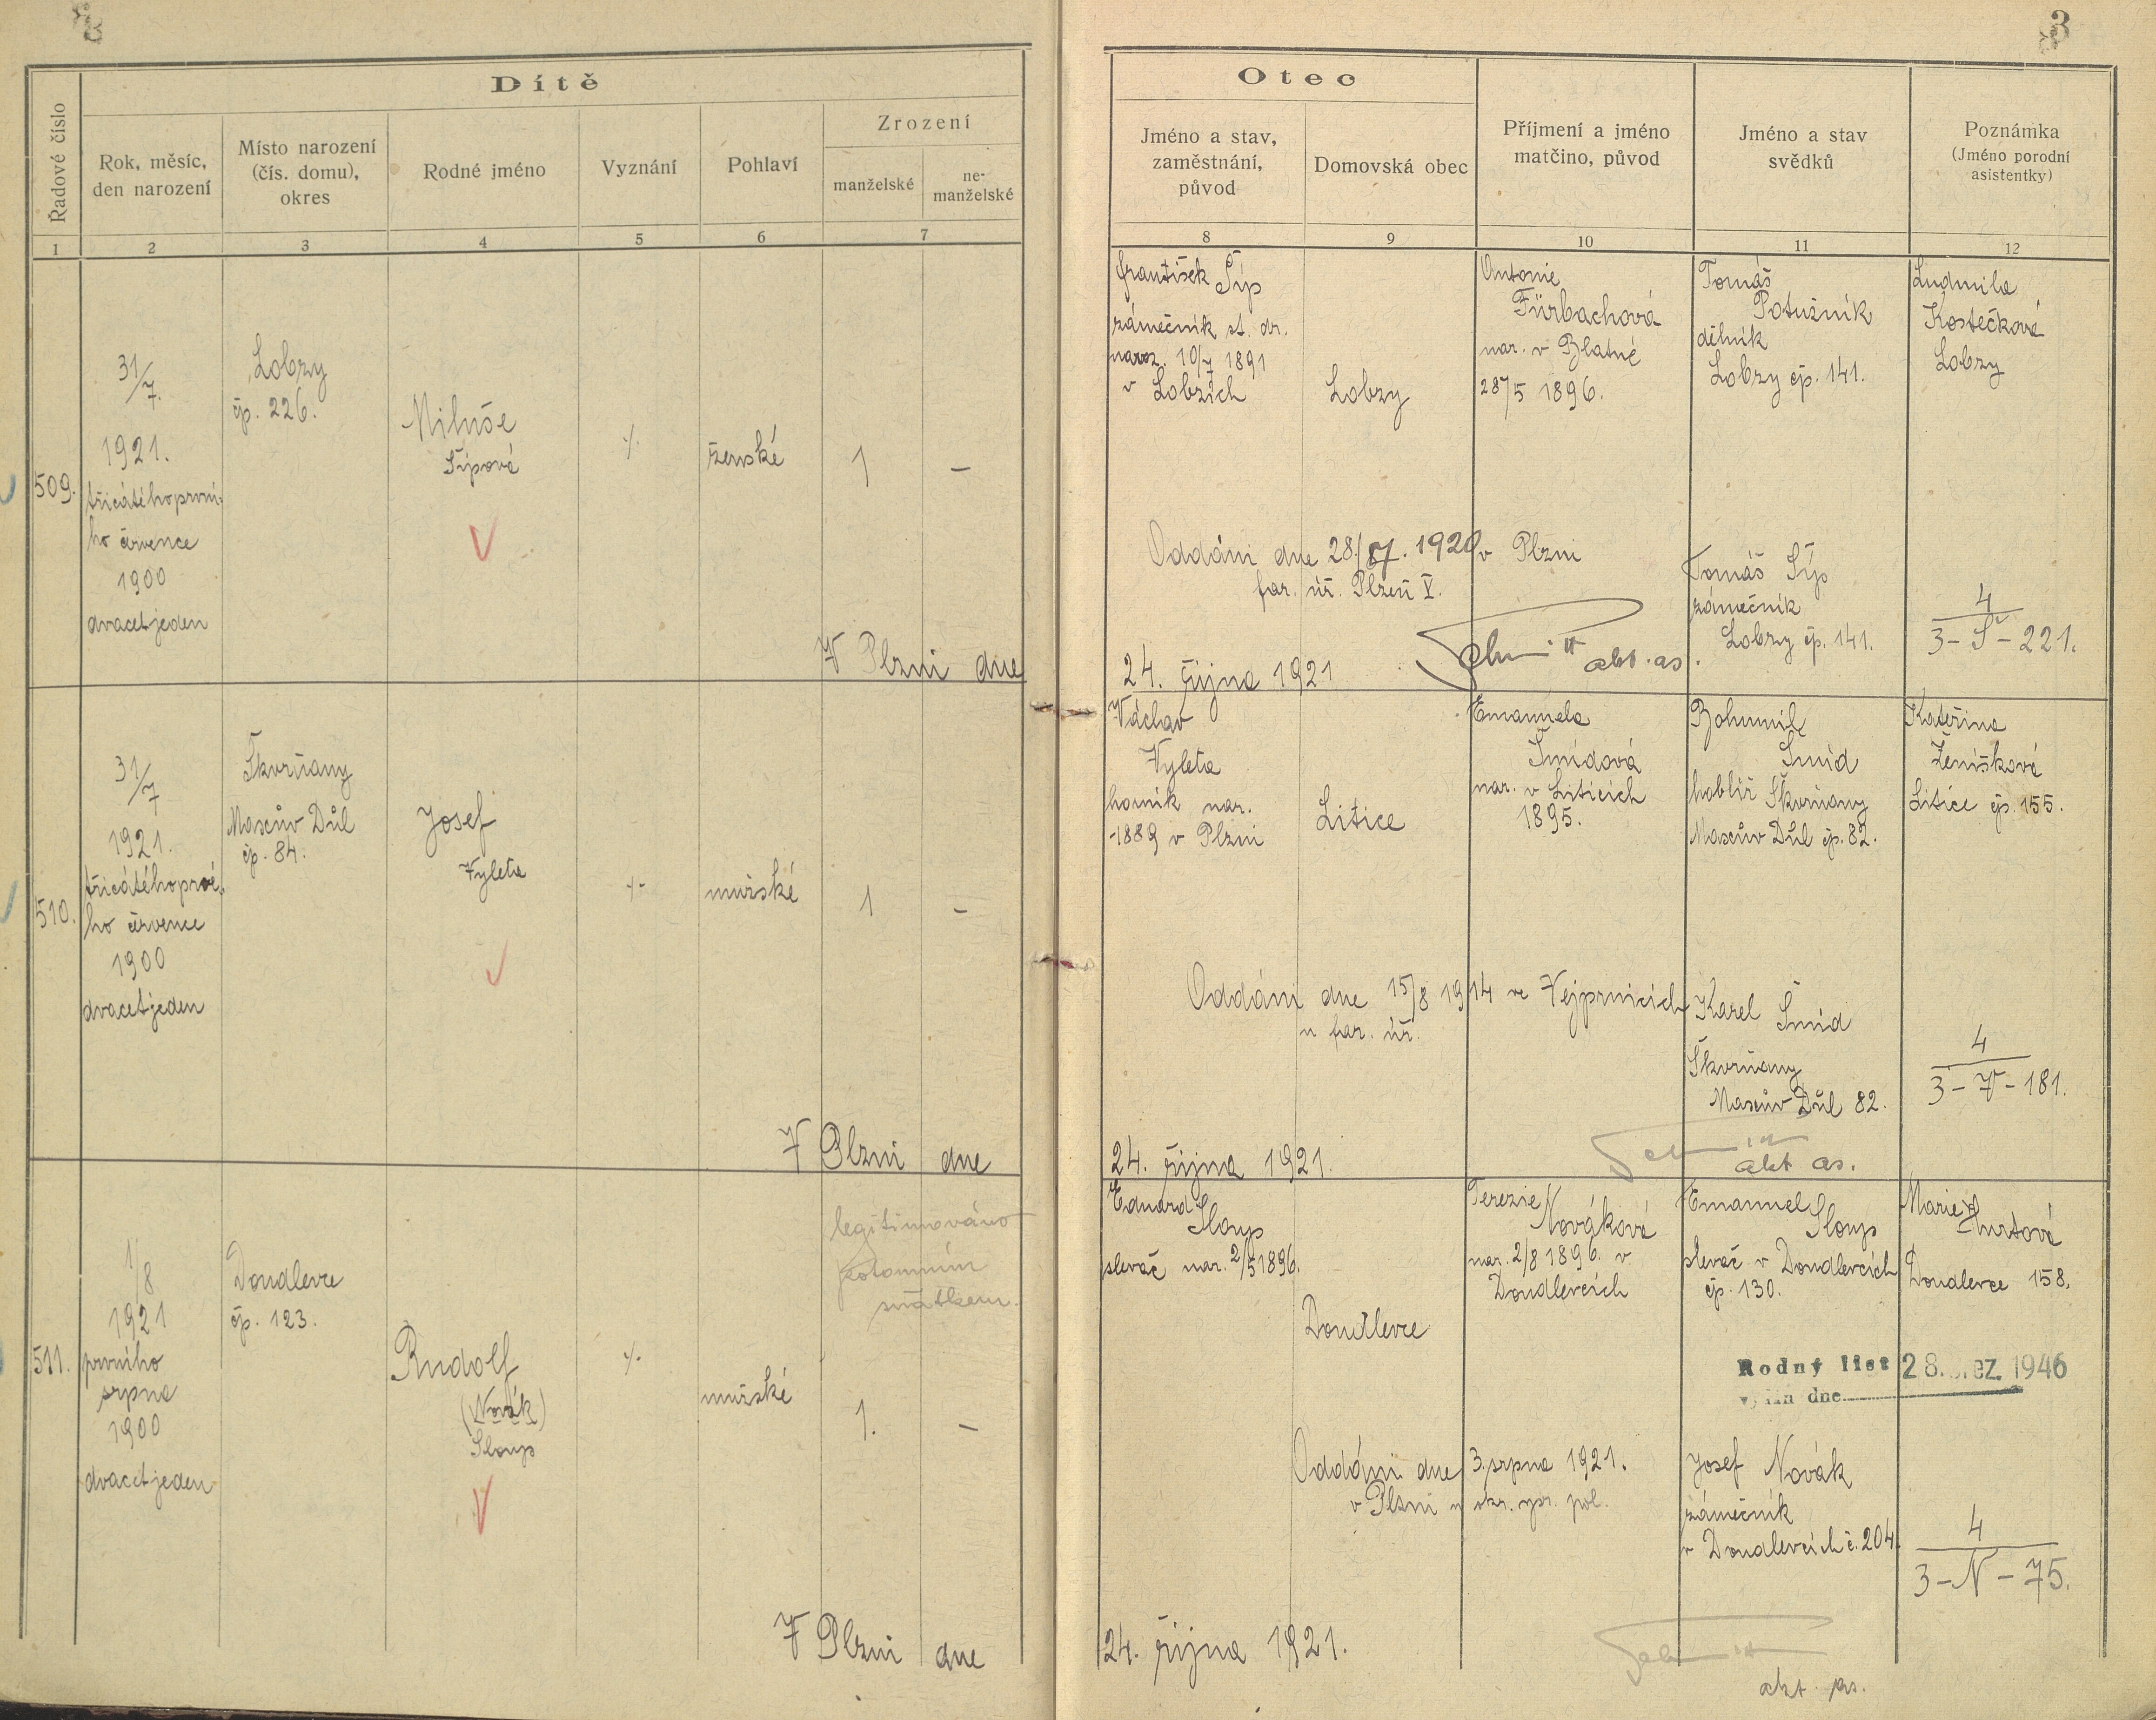 3
3
Dítě
Řadové číslo
Rok, měsíc,
den narození
Místo narození
(čís. domu),
okres
Rodné jméno
Vyznání
Pohlaví
Zrození
manželské
ne-
manželské
1
2
3
4
5
6
7
Otec
Jméno a stav,
zaměstnání,
původ
Domovská obec
Příjmení a jméno
matčino, původ
Jméno a stav
svědků
Poznámka
(Jméno porodní
asistentky)
8
9
10
11
12
509.
31/7.
1921.
třicátéhoprvní-
ho července
1900
dvacetjeden
Lobzy
čp. 226.
Miluše
Šípová
%
ženské
1
–
František Šíp
zámečník st. dr.
naroz. 10/7 1891
v Lobzích
Lobzy
Antonie
Fürbachová
nar. v Blatné
28/5 1896.
Tomáš
Potužník
dělník
Lobzy čp. 141.
Ludmila
Kostečková
Lobzy
Oddáni dne 28./7. 1920 v Plzni
far. úř. Plzeň V.
Tomáš Šíp
zámečník
Lobzy čp. 141.
4
3 – Š – 221.
V Plzni dne
24. října 1921
akt. as.
510.
31/7
1921.
třicátéhoprvé-
ho července
1900
dvacetjeden
Škvrňany
Maxův Důl
čp. 84.
Josef
Vyleta
%
mužské
1
–
Václav
Vyleta
horník nar.
1889 v Plzni
Litice
Emanuela
Šmídová
nar. v Liticích
1895.
Bohumil
Šmíd
Škvrňany
Maxův Důl čp. 82.
Kateřina
Ženíšková
Litice čp. 155.
Oddáni dne 15/8 1914 ve Vejprnicích
u far. úř.
Karel Šmíd
Škvrňany
Maxův Důl 82.
4
3 – V – 181.
V Plzni dne
24. října 1921.
akt as.
511.
1/8
1921
prvního
srpna
1900
dvacetjeden
Doudlevce
čp. 123.
Rudolf
(Novák)
Sloup
%
mužské
legitimováno
potomním
sňatkem.
1.
–
Eduard
Sloup
slevač nar. 2/5 1896.
Doudlevce
Terezie
Nováková
nar. 2/8 1896. v
Doudlevcích
Emanuel
Sloup
slevač v Doudlevcích
čp. 130.
Marie
Doudlevce 158.
Rodný list 28. 1946
dne
Oddáni dne 3. srpna 1921.
v Plzni u okr. spr. pol.
Josef Novák
zámečník
v Doudlevcích č. 204.
4
3 – N – 75.
V Plzni dne
24. října 1921.
akt. as.